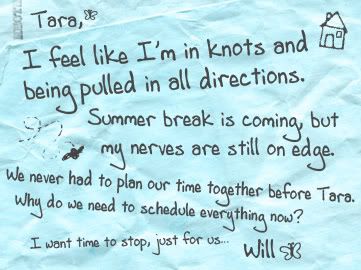 Tara,
I feel like I'm in knots and
being pulled in all directions.
Summer break is coming, but
my nerves are still on edge.
We never had to plan our time together before Tara.
Why do we need to schedule everything now?
I want time to stop, just for us...
Will